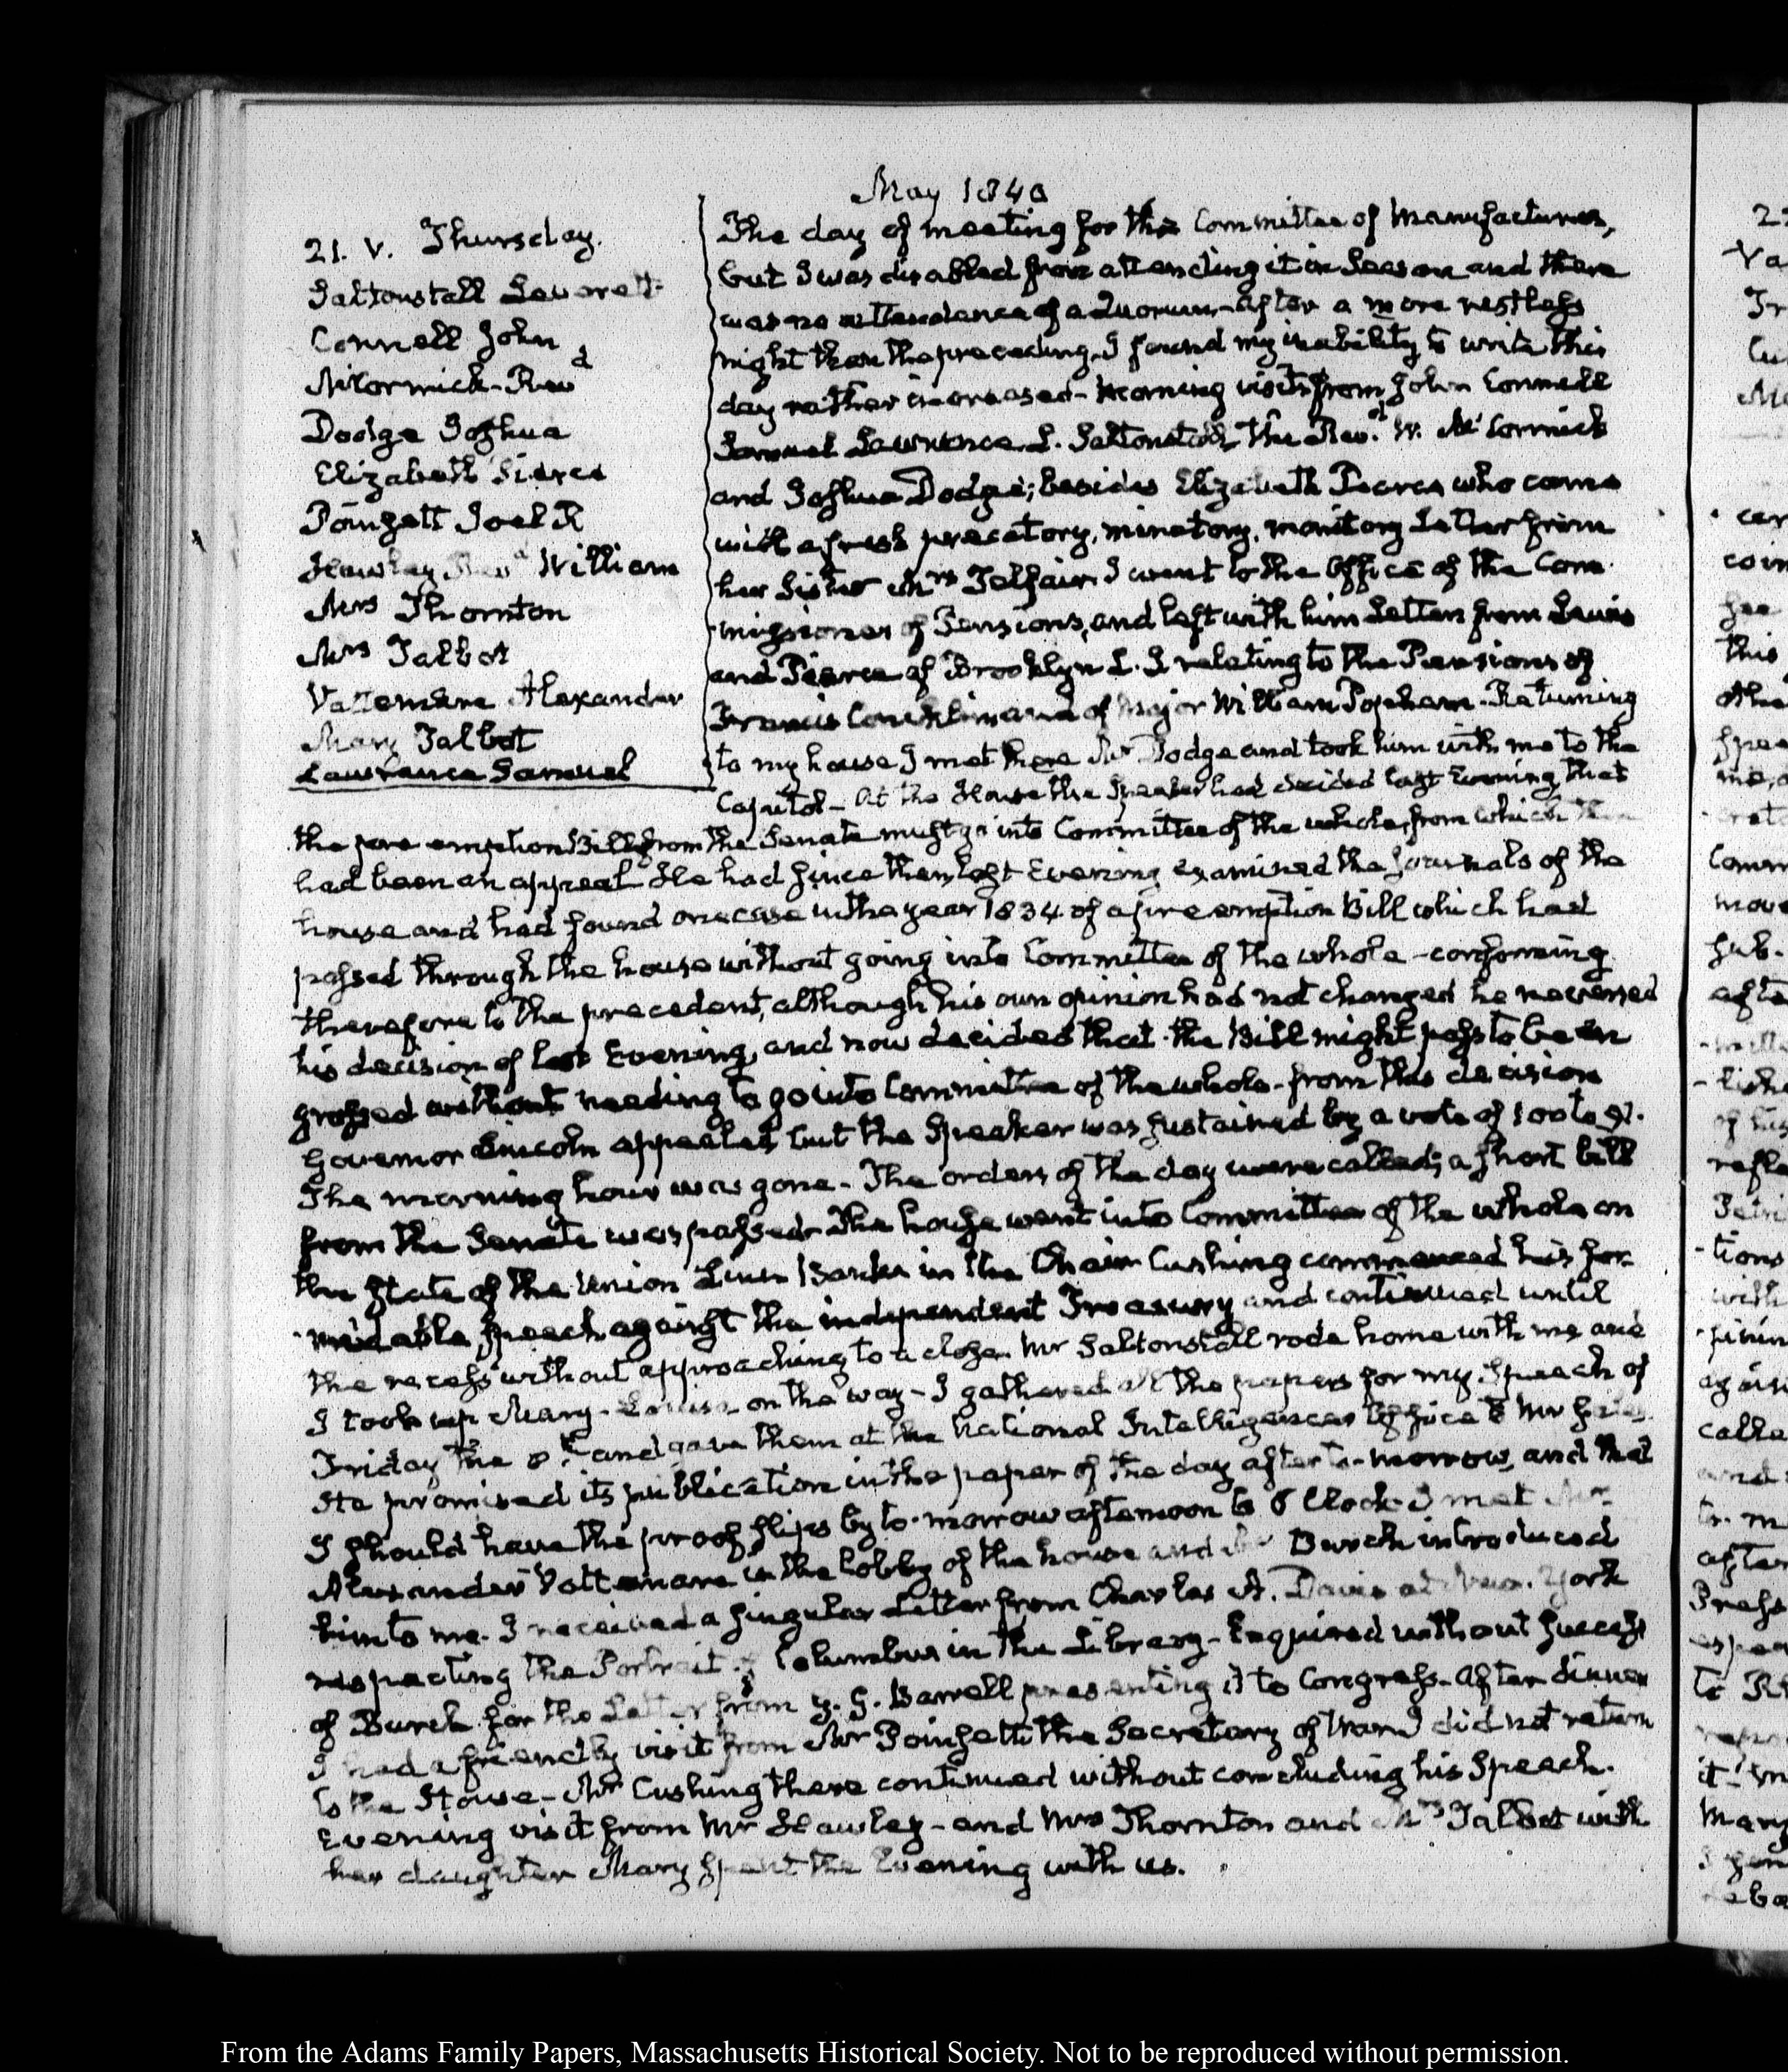 May 1840
21. V. Thursday.
Saltonstall Leverett
Connell John
McCormick Revd
Dodge Joshua
Elizabeth Pierce
Poinsett Joel R
Hawley Revd William
Mrs Thornton
Mrs Talbot
Vattemare Alexander
Mary Talbot
Lawrence Samuel
The day of meeting for the Committee of Manufactures,
but I was disabled from attending it in Season and there
was no attendance of a Quorum - after a more restless
night than the preceding, I found my inability to write this
day rather increased - Morning visits from John Connell
Samuel Lawrence L. Saltonstall, the Revd. W. McCormick
and Joshua Dodge; besides Elizabeth Pierce who came
with a fresh precatory, minatory, monitory Letter from
her Sister Mrs Telfair I went to the Office of the Com-
missioner of Pensions, and left with him Letters from Lewis
and Pierce of Brooklyn L. I relating to the Pensions of
Francis Conklin and of Major William Popham. Returning
to my house I met there Mr Dodge and took him with me to the
Capitol - At the House the Speaker had decided last Evening, that
the pre emption Bill from the Senate must go into Committee of the whole, from which there
had been an appeal He had since then, last Evening examined the journals of the
house and had found one case in the year 1834 of a pre emption Bill which had
passed through the house without going into Committee of the whole - conforming
therefore to the precedent, although his own opinion had not changed he reversed
his decision of last Evening, and now decided that the Bill might pass to be en
grossed without needing to go into Committee of the whole - from this decision
Governor Lincoln appealed but the Speaker was sustained by a vote of 100 to 91.
The morning hour was gone - The orders of the day were called; a short bill
from the Senate was passed. The house went into Committee of the whole on
the State of the Union Linn Banks in the Chair Cushing commenced his for-
midable speech against the independent Treasury and continued until
the recess without approaching to a close. Mr Saltonstall rode home with me and
I took up Mary-Louisa on the way - I gathered all the papers for my Speech of
Friday the 8th and gave them at the National Intelligencer Office to Mr
He promised its publication in the paper of the day after to-morrow, and that
I should have the proof slips by to-morrow afternoon 6 O Clock. I met Mr
Alexander Vattemare in the lobby of the house and Mr Burch introduced
him to me. I received a singular Letter from Charles A. Davis at New-York
respecting the Portrait of Columbus in the Library - Enquired without success
of Burch for the Letter from G. G. Barrell presenting it to Congress. After dinner
I had a friendly visit from Mr Poinsett the Secretary of War. I did not return
to the House - Mr Cushing there continued without concluding his Speech.
Evening visit from Mr Hawley - and Mrs Thornton and Mrs Talbot with
her daughter Mary spent the Evening with us.
From the Adams Family Papers, Massachusetts Historical Society. Not to be reproduced without permission.